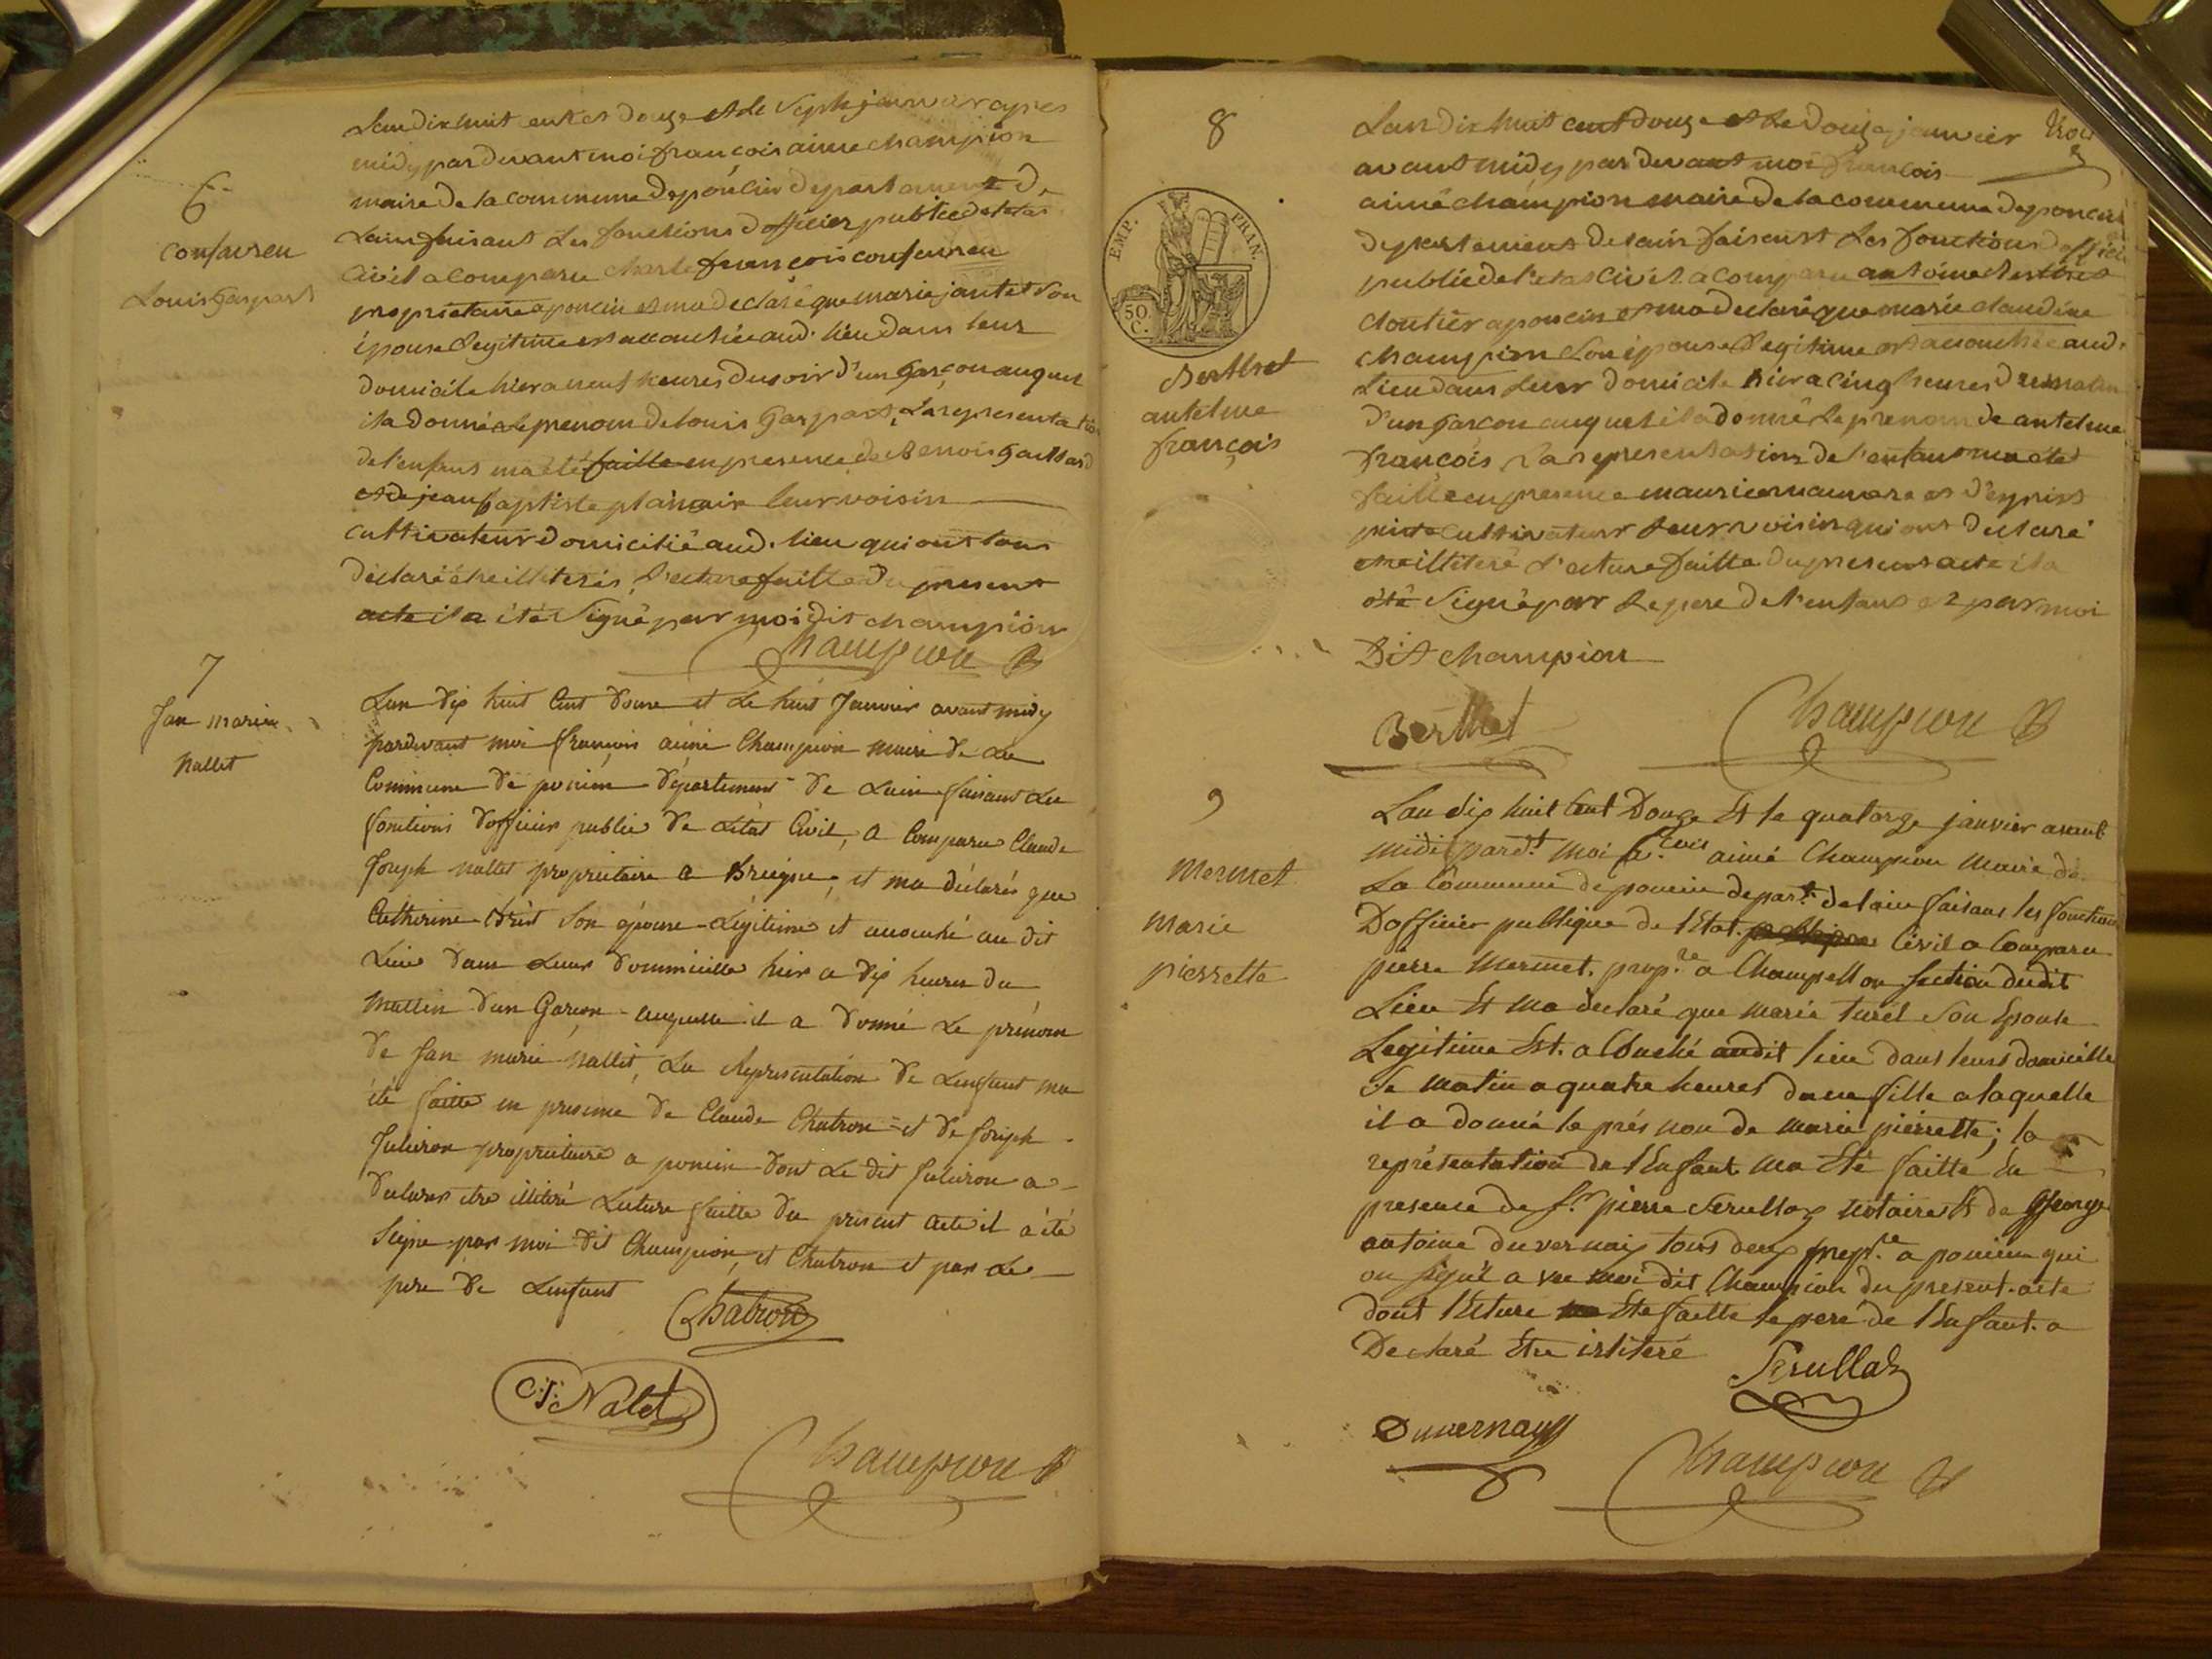 6
confavreu
Louis gaspart
Lan dix huit cent et douze et le Sept janvier apres
midy par devant moi françois aimé champion
maire de la commune de poncin departement de
Lain faisant Les fonctions d officier public de letat
Civil a comparu charle françois confavreu
propriétaire a poncin et ma declaré que marie jantet son
épouse Legitime est accouchée aud. lieu dans leur
domicile hier a neuf heures du soir d'un garçon auquel
il a donné le prenom de louis gaspart, La representation
de l'enfant ma été faitte en presence de Benois gaillard
et de jean baptiste leur voisin
cultivateur domicilié aud. lieu qui ont tous
déclaré etre illiterés, L'ecture faitte du present
acte il a été Signé par moi dit champion
Champion
7
Jan marie
Nallet
Lan dix huit Cent douze et Le huit Janvier avant midy
pardevant moi françois aimé Champion maire de La
Commune de poncin département de Lain faisant Les
fonctions d'officier public de Létat Civil, a Comparu Claude
Joseph nallet propriétaire a Breigne, et ma déclaré que
Catherine son épouse Légitime et accouché au dit
Lieu dans Leur dommicille hier a dix heures du
mattin dun Garcon auquelle il a donné Le prénom
de Jan marie Nallet, La Representation de Lenfant ma
été faitte en presence de Claude Chatron et de Joseph
Juliron propriétaire a poncin dont Le dit Juliron a
declarer etre illitéré Lecture faitte du present acte il a été
Signe par moi dit Champion, et Chatron et par Le
pere de Lenfant
Chatron
C.J. Nalet
Champion
8
EMP. FRAN.
50 C.
Berthet
antelme
françois
Lan dix huit cent douze et Le douze janvier
avant midy par devant moi françois
aimé champion maire de la commune de poncin
departement de lain faisant Les fonctions d officier
public de l'etat civil a comparu antoine Berthet
cloutier a poncin et ma declaré que marie claudine
champion son épouse Legitime est accouchée aud.
Lieu dans Leur domicile hier a cinq heures du matin
d'un garcon auquel il a donné Le prenom de antelme
françois La representation de l'enfant ma été
faitte en presence maurice et d'esprit
cultivateur Leur voisin qui ont declaré
etre illiteré L'ecture faitte du present acte il a
été Signé par Le pere de l'enfant et par moi
Dit champion
Berthet
Champion
9
Mermet
Marie
pierrette
Lan dix huit Cent Douze Et le quatorze janvier avant
midi pard.t moi f.cois aimé Champion Maire de
La Commune de poncin depar.t de lain faisant les fonctions
Dofficier publique de lEtat Civil a Comparu
pierre Mermet. prop.re a Champellon section dudit
Lieu Et ma declaré que marie turel Son Epouse
Legitime Est. a Couché audit lieu dans leurs domicille
Ce matin a quatre heures dune fille a laquelle
il a donné le prés nom de marie pierrette; la
représentation de lEnfant ma Eté faitte En
presence de S.r pierre Serullaz notaire Et de George
antoine duvernay tous deux prop.re a poncin qui
on signé a vec moi dit Champion du present. acte
dont lEcture Eté faitte le pere de lEnfant. a
Declaré Etre illiteré
Serullaz
Duvernay
Champion